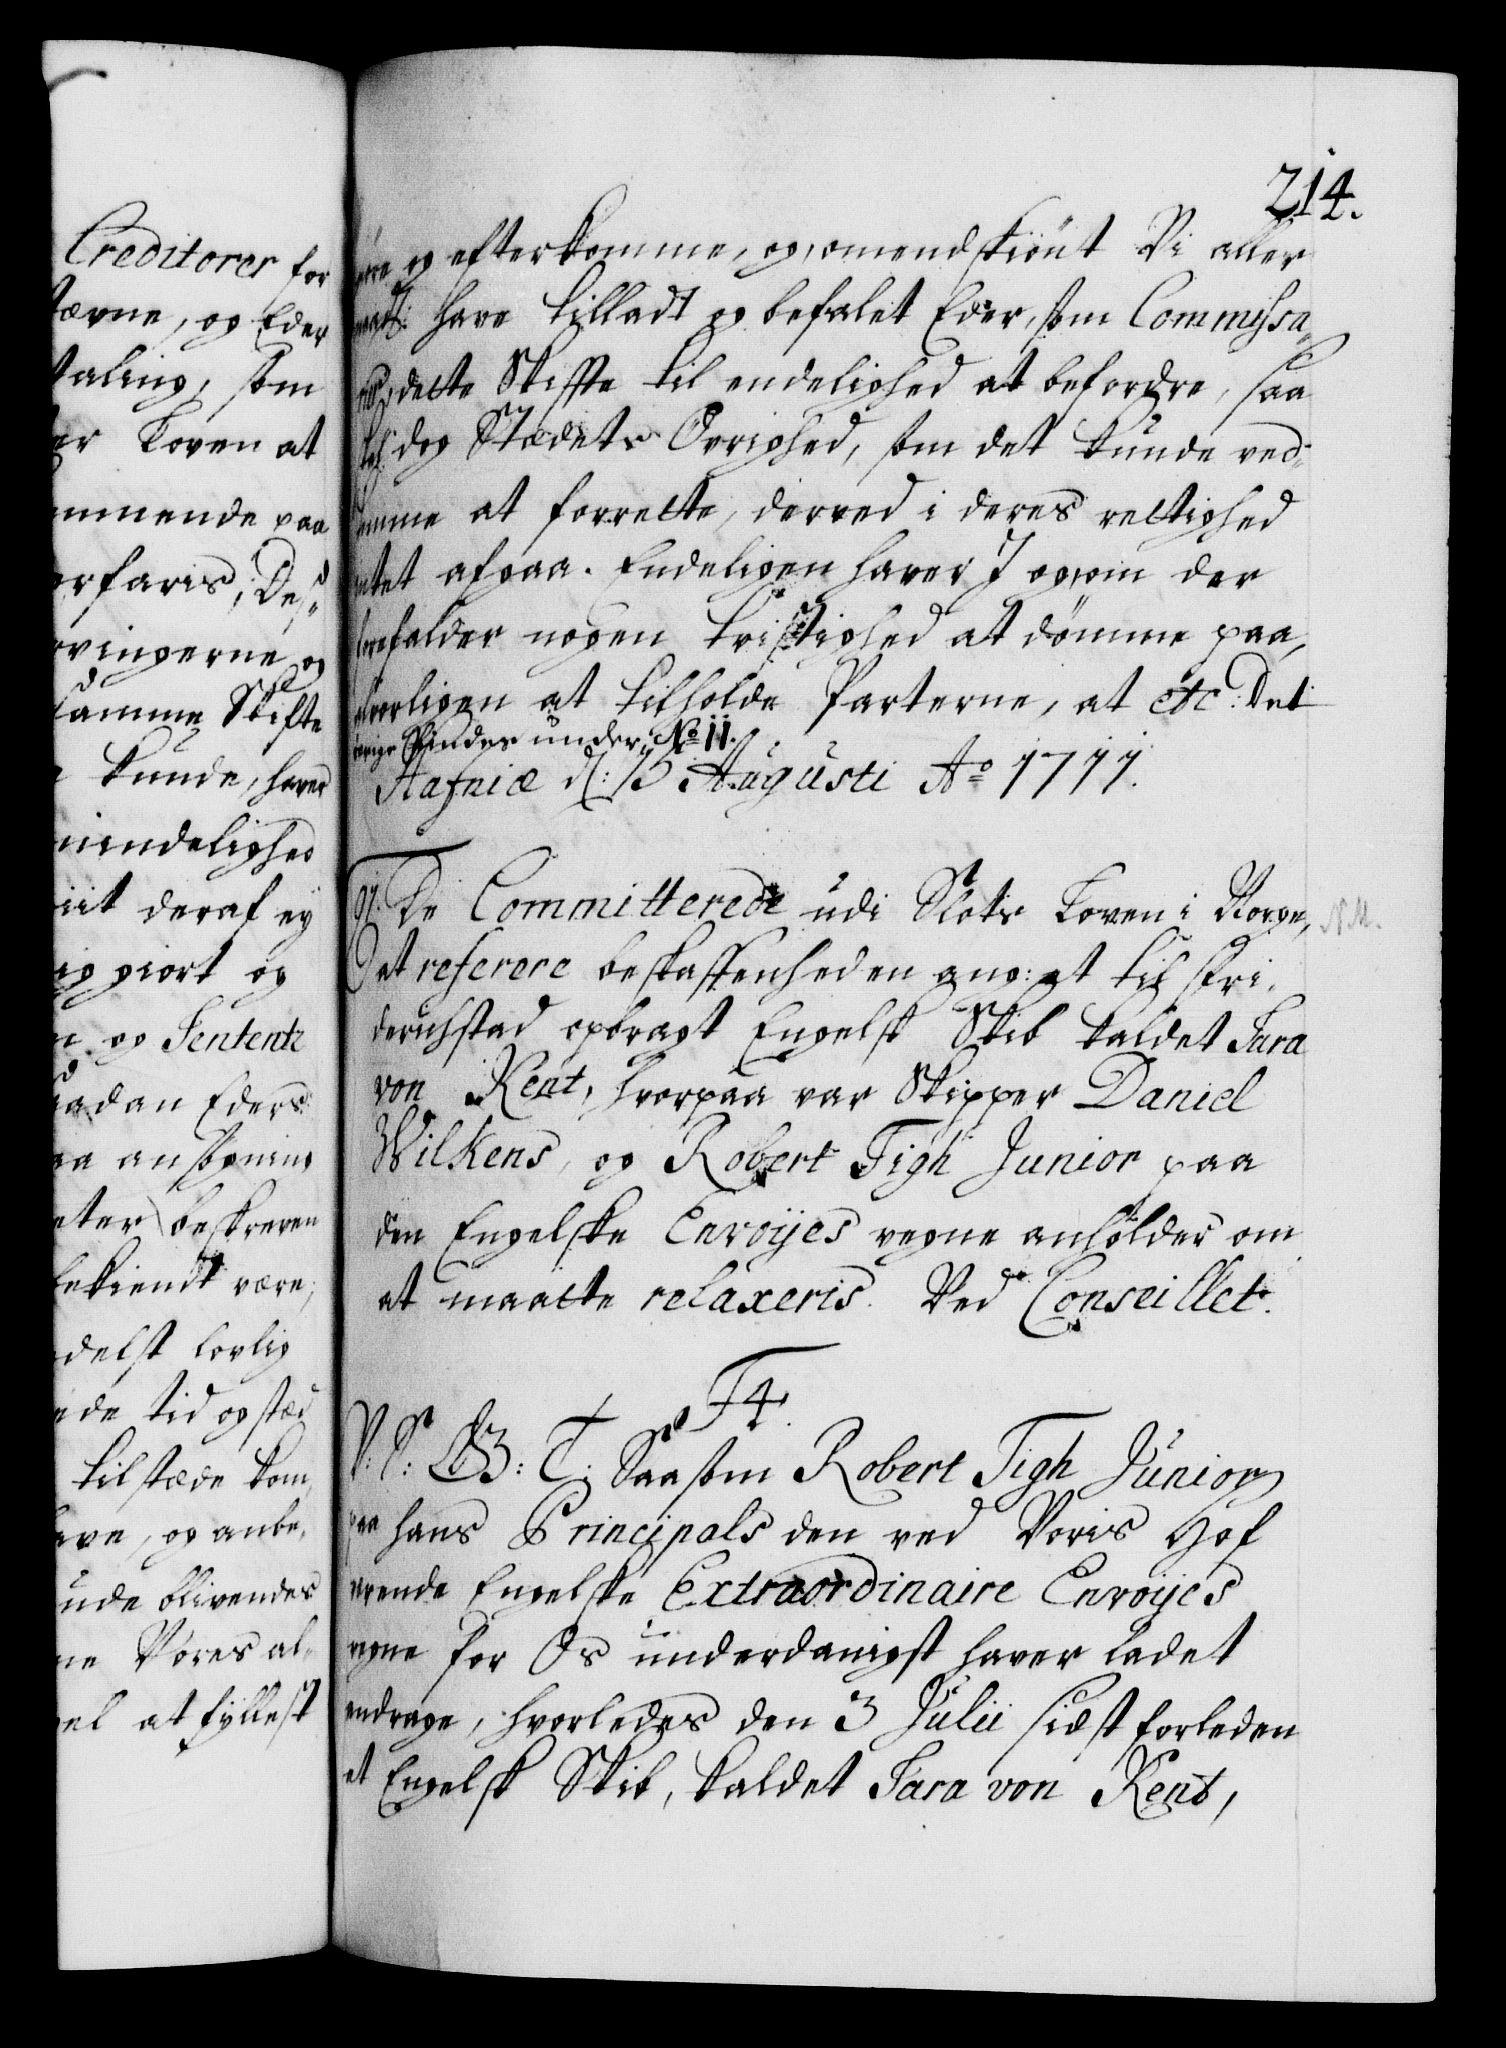 Creditorer for
tævne, og Eder
taling, som
er Loven at
mmende paa
erfaris, Des-
rvingerne og
samme Skifte
Kunde, haver
mindelighed
iit deraf ey
ig giort og
n og Sententz
aadan Eders
aa ansøgning
eter beskreven
bekiendt være,
delst lovlig
ede tid og stæd
tilstæde kom,
ave, og anbe,
unde blivendes
ne Vores al-
el at fyllest
214.
giøre og efterkomme, og, omendskiønt Vi aller
naadt: have tilladt og befalet Eder, som Commissa-
rier, dette Skifte til endelighed at befordre, saa
skal dog Stædets Øvrighed, som det kunde ved-
komme at forrette, derved i deres rettighed
intet afgaa. Endeligen haver I og, om der
forefalder nogen tvistighed at dømme paa,
alvorligen at tilholde Parterne, at etc: Det
øvrige findes under No 11.
Hafniæ d: 15 Augusti Ao 1711.
De Committerede udi Slots Loven i Norge, N.M.
at referere beskaffenheden ang: at til Fri-
derichstad opbragt Engelsk Skib kaldet Sara
von Kent, hvorpaa var Skipper Daniel
Wilkens, og Robert Tigh Junior paa
den Engelske Envoyes vegne anholder om
at maatte relaxeris. Ved Conseillet.
F4.
V: S: G: B: T: Saasom Robert Tigh Junior
paa hans Principals den ved Voris Hof
værende Engelske Extraordinaire Envoyes
vegne for Os underdanigst haver ladet
andrage, hvorledes den 3 Julii sidst forleden
et Engelsk Skib, kaldet Sara von Kent,